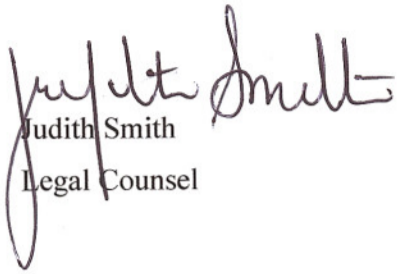 Judith Smith
Judith Smith
Legal Counsel